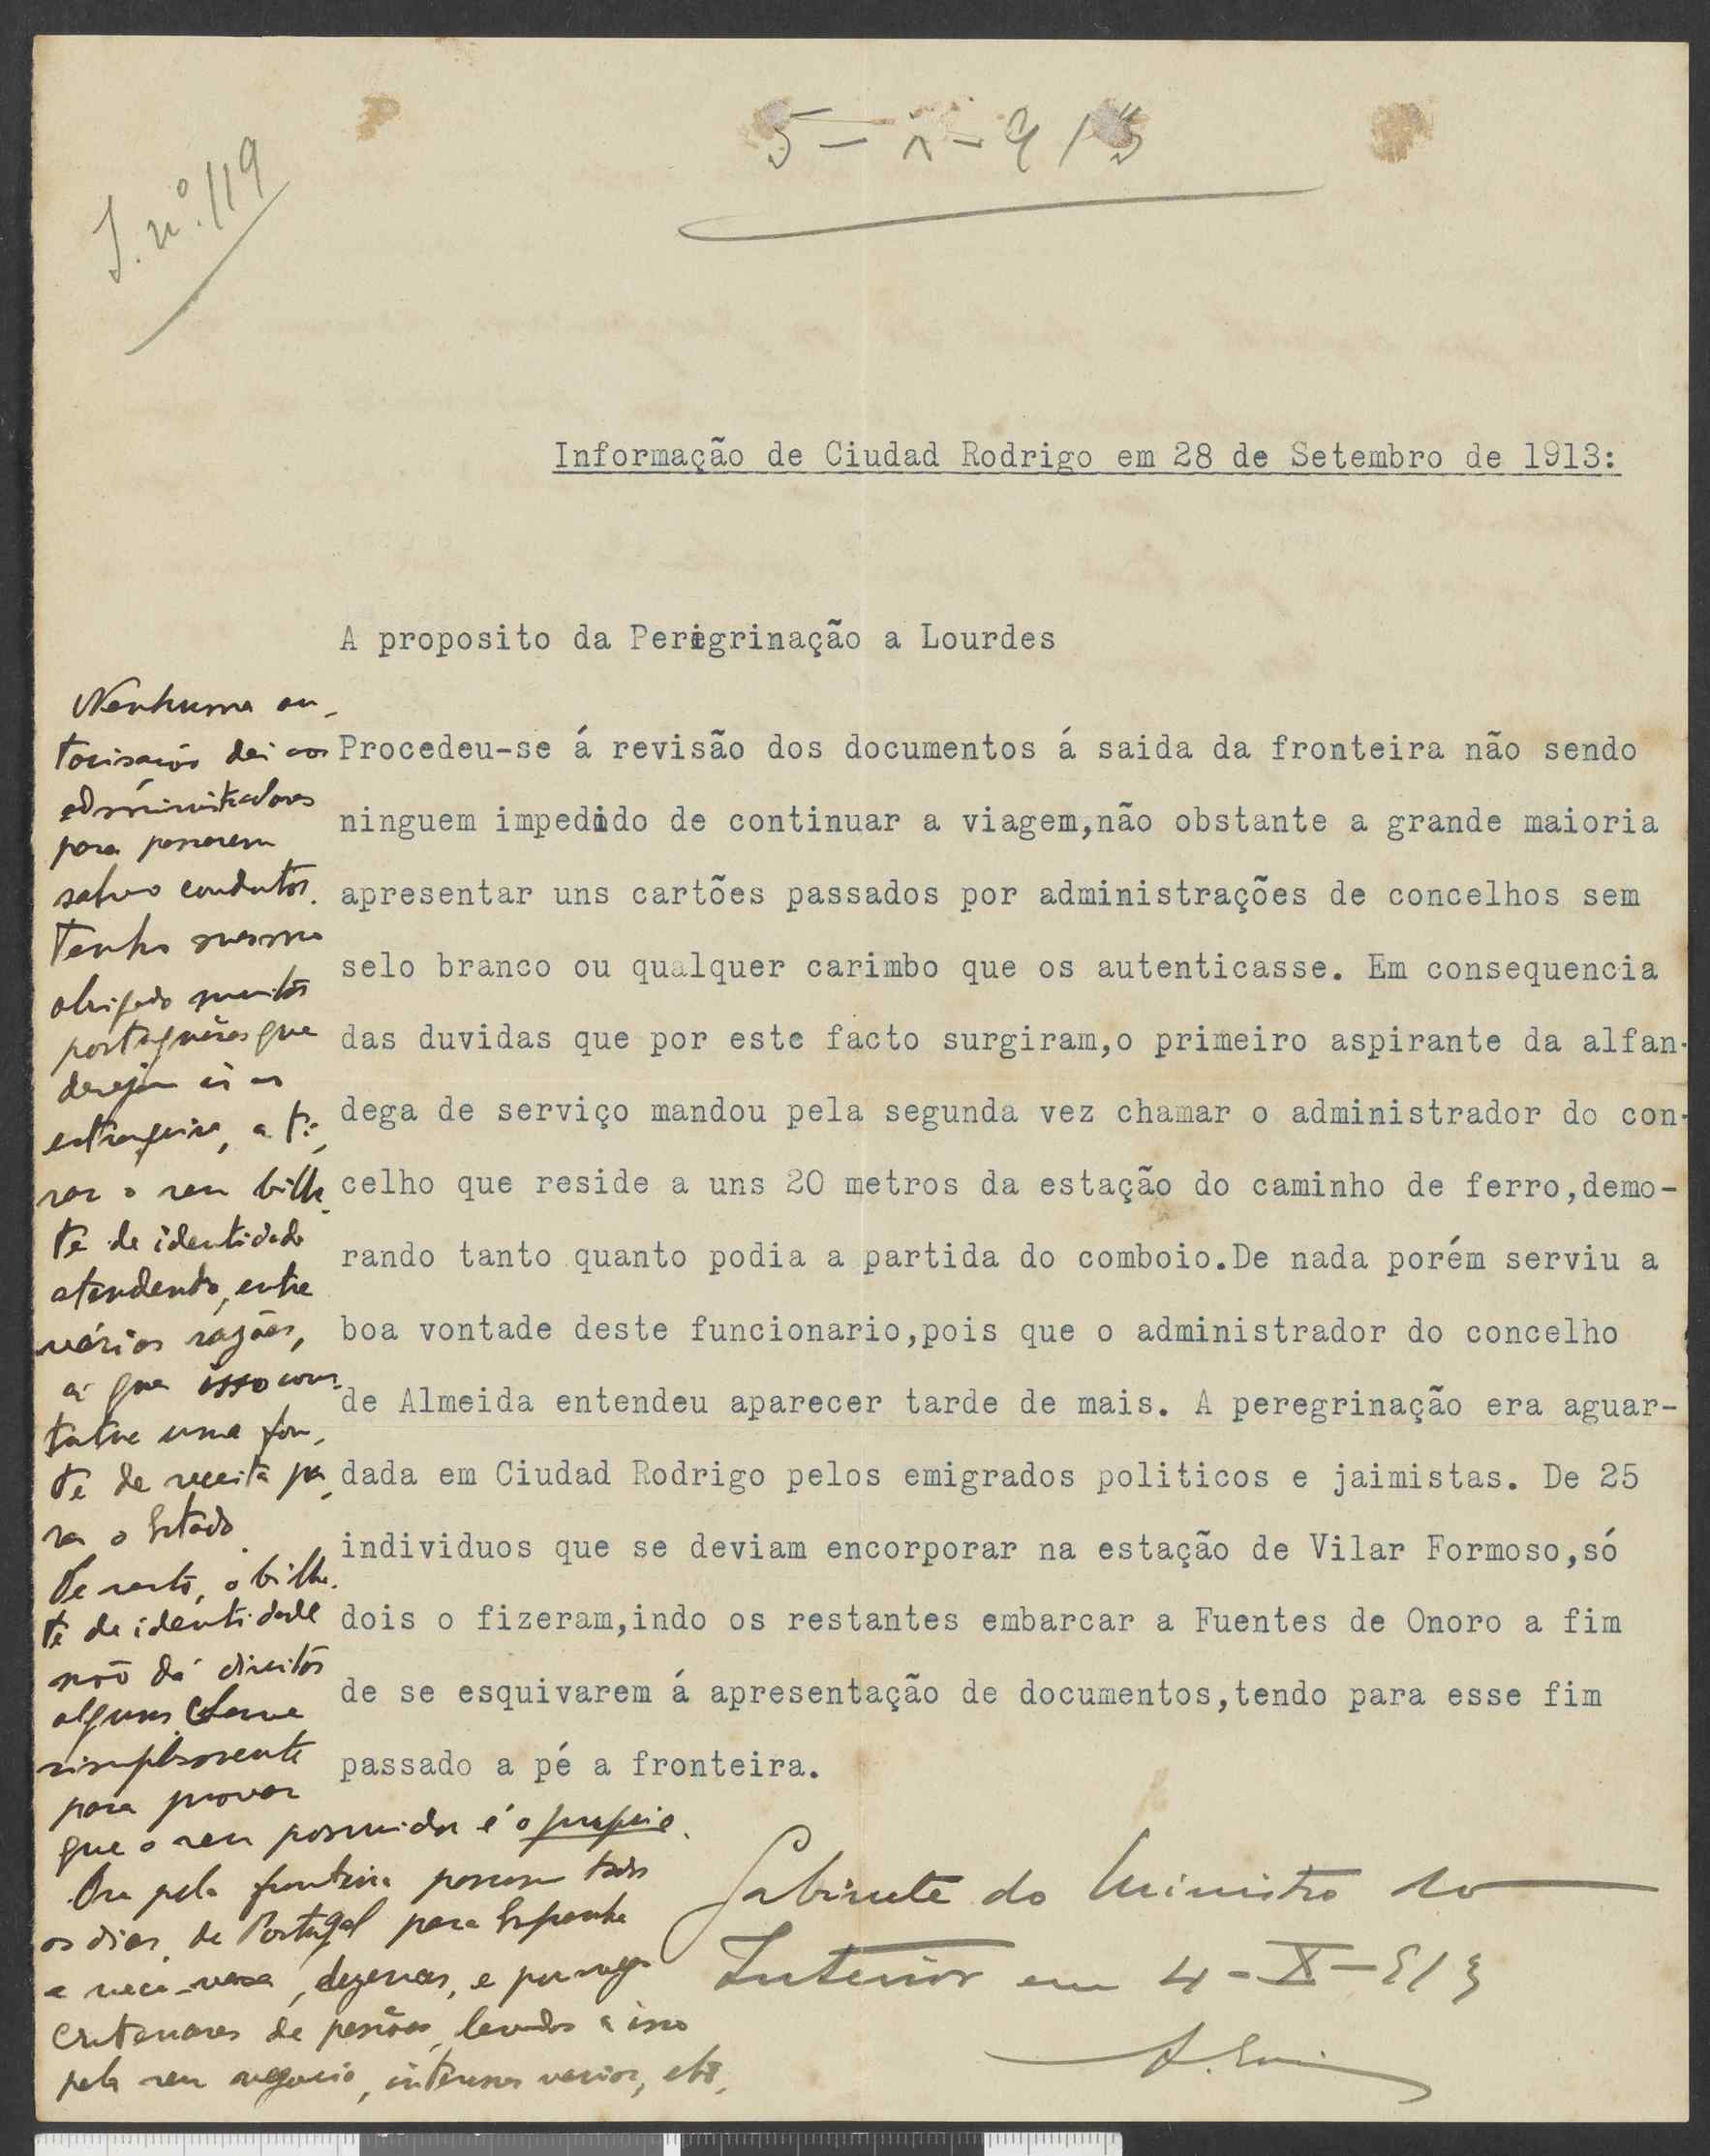 I. nº. 119
5-X-913
Informação de Ciudad Rodrigo em 28 de Setembro de 1913:
A proposito da Perigrinação a Lourdes
Procedeu-se á revisão dos documentos á saida da fronteira não sendo
ninguem impedido de continuar a viagem,não obstante a grande maioria
apresentar uns cartões passados por administrações de concelhos sem
selo branco ou qualquer carimbo que os autenticasse. Em consequencia
das duvidas que por este facto surgiram,o primeiro aspirante da alfan-
dega de serviço mandou pela segunda vez chamar o administrador do con-
celho que reside a uns 20 metros da estação do caminho de ferro,demo-
rando tanto quanto podia a partida do comboio.De nada porém serviu a
boa vontade deste funcionario,pois que o administrador do concelho
de Almeida entendeu aparecer tarde de mais. A peregrinação era aguar-
dada em Ciudad Rodrigo pelos emigrados politicos e jaimistas. De 25
individuos que se deviam encorporar na estação de Vilar Formoso,só
dois o fizeram,indo os restantes embarcar a Fuentes de Onoro a fim
de se esquivarem á apresentação de documentos,tendo para esse fim
passado a pé a fronteira.
Nenhuma au-
torisação dei aos
administradores
para passarem
salvo condutos.
Tenho mesmo
obrigado muitos
portuguêses que
desejam ir ao
estrangeiro, a ti-
rar o seu bilhe-
te de identidade
atendendo, entre
várias razões,
a que isso cons-
titue uma fon-
te de receita pa-
ra o Estado.
De resto, o bilhe-
te de identidade
não dá direitos
alguns e serve
simplesmente
para provar
que o seu possuidor é o proprio.
Ora pela fronteira passam todos
os dias, de Portugal para Espanha
e vece-versa, dezenas, e por vezes
centenares de pessôas, levadas a isso
pelo seu negocio, interesses varios, etc.
Gabinete do Ministro do
Interior em 4-X-913